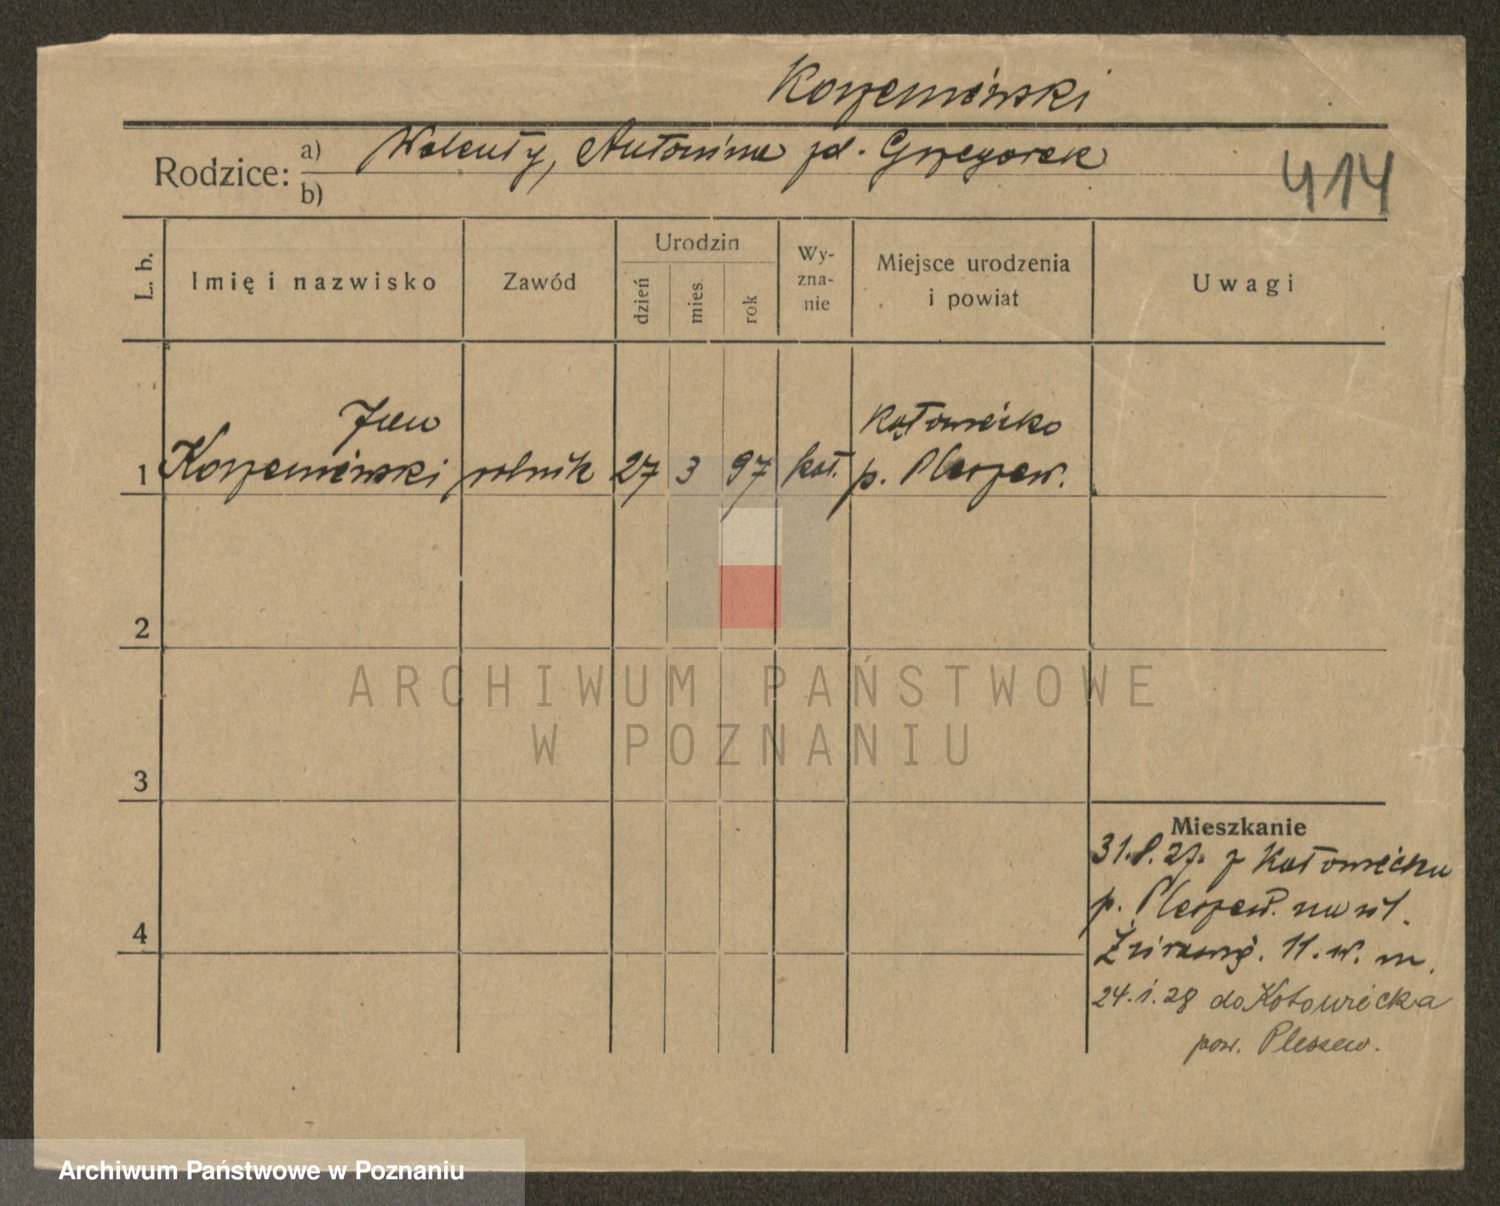 Korzeniewski
Rodzice: a) Walenty, Antonina zd. Grzegorek
b)
414
L. b.
Imię i nazwisko
Zawód
Urodzin
dzień
mies.
rok
Wy-
zna-
nie
Miejsce urodzenia
i powiat
Uwagi
Jan
Kotowiecko
1 Korzeniewski rolnik 27 3 97 kat. p. Pleszew.
2
ARCHIWUM PAŃSTWOWE
W POZNANIU
3
4
Mieszkanie
31.8.27. z Kotowiecka
p. Pleszew. na ul.
11. w. m.
24.1.28 do Kotowiecka
pow. Pleszew.
Archiwum Państwowe w Poznaniu